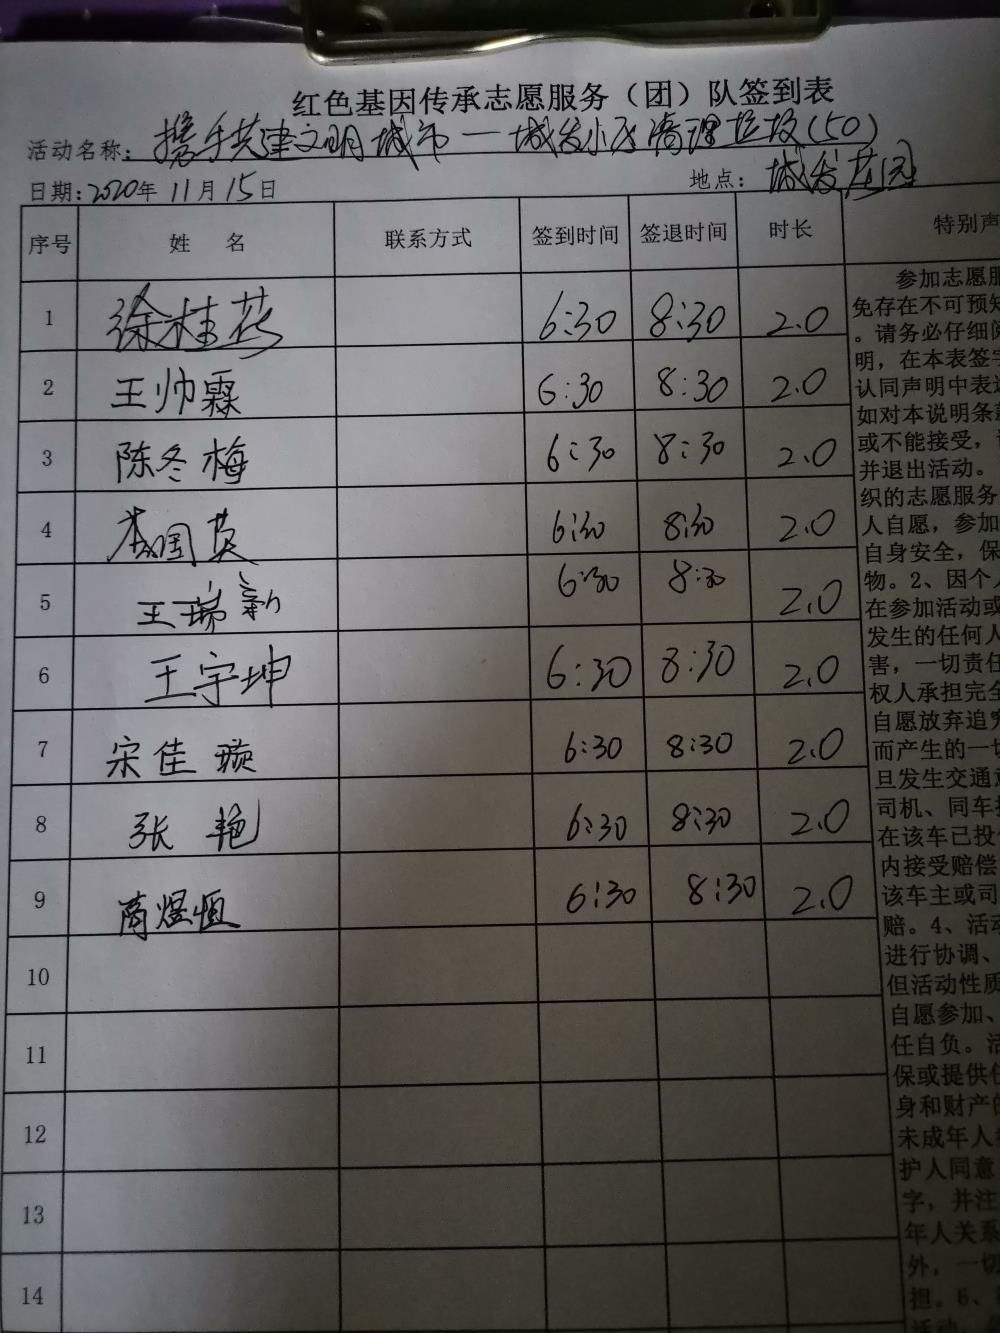 红色基因传承志愿服务（团）队签到表
活动名称：携手共建文明城市—城发小区清理垃圾（50）
日期：2020年 11月 15日 地点：城发花园
序号 姓 名 联系方式 签到时间 签退时间 时长 特别声
1 徐桂花 6:30 8:30 2.0
2 王帅霖 6:30 8:30 2.0
3 陈冬梅 6:30 8:30 2.0
4 李国英 6:30 8:30 2.0
5 王瑞新 6:30 8:30 2.0
6 王宇坤 6:30 8:30 2.0
7 宋佳璇 6:30 8:30 2.0
8 张艳 6:30 8:30 2.0
9 商煜恒 6:30 8:30 2.0
10
11
12
13
14
参加志愿服
免存在不可预知
。请务必仔细阅
明，在本表签字
认同声明中表述
如对本说明条款
或不能接受，
并退出活动。
织的志愿服务
人自愿，参加
自身安全，保
物。2、因个人
在参加活动或
发生的任何人
害，一切责任
权人承担完全
自愿放弃追究
而产生的一切
旦发生交通意
司机、同车
在该车已投
内接受赔偿
该车主或司
赔。4、活动
进行协调、
但活动性质
自愿参加、
任自负。活
保或提供任
身和财产的
未成年人
护人同意
字，并注
年人关系
外，一切
担。6、
活动，